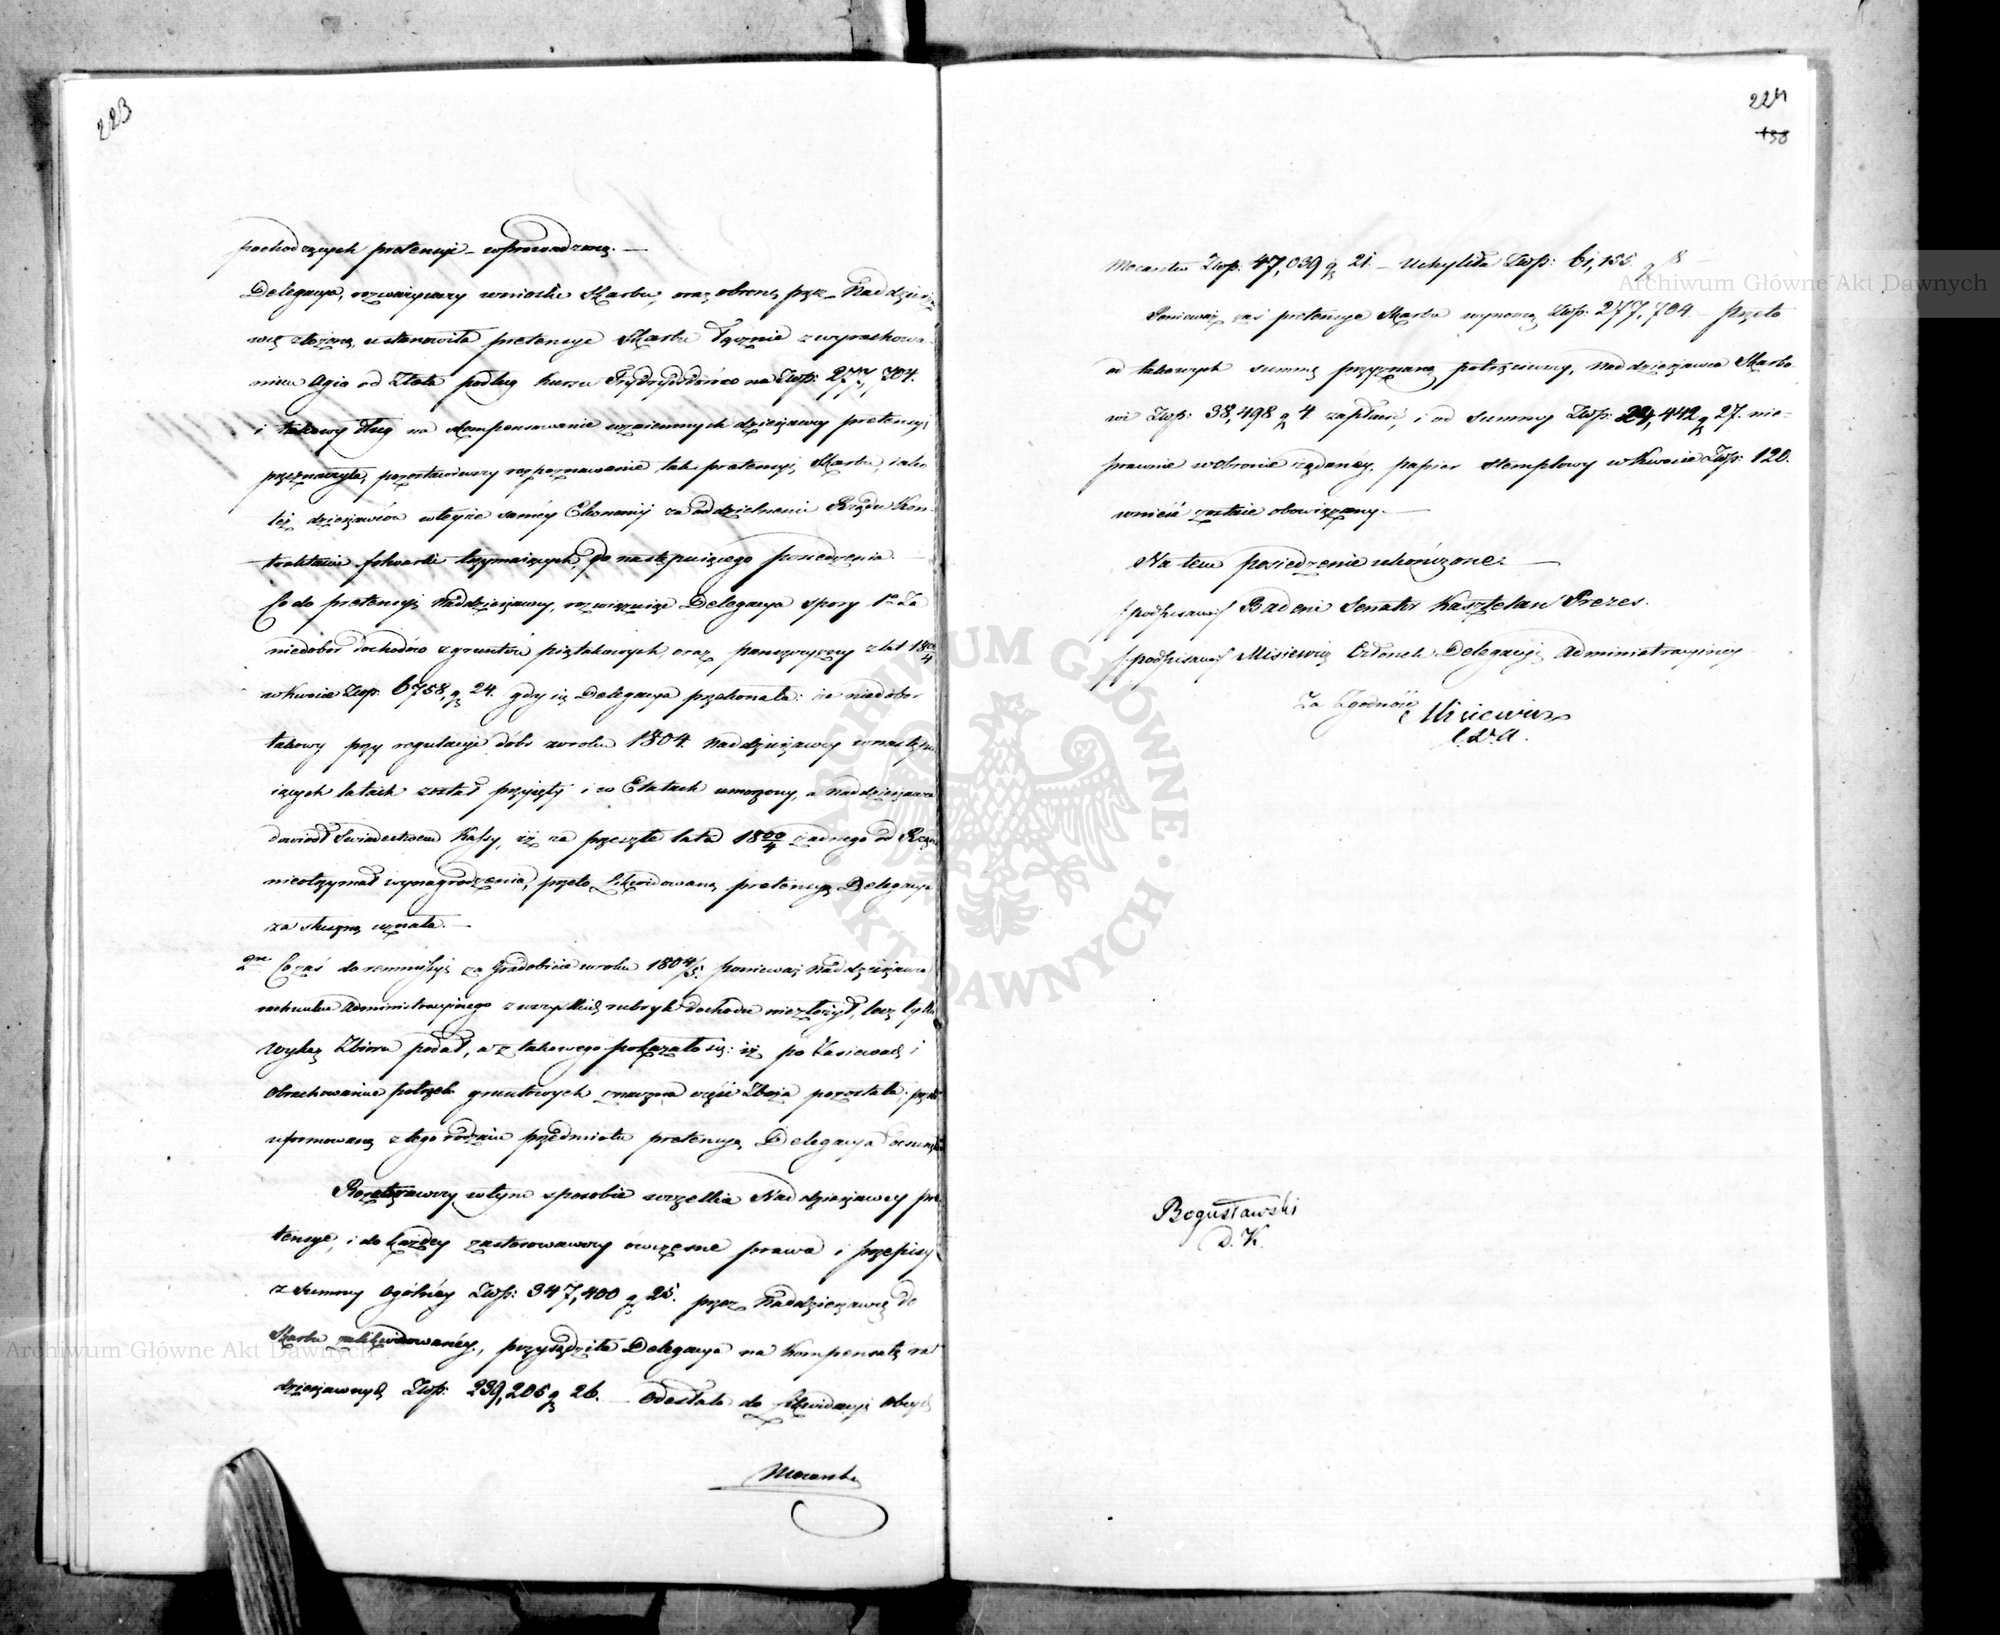 223
pochodzących pretensye wprowadzoną. —
Delegacya, rozważywszy wnioski Skarbu, oraz obronę przez Naddzierża
wcę złożoną, ustanowiła pretensye Skarbu łącznie z wyrachowa
niem Agio od Złota podług kursu Frydrychsdorów na Złp: 277,704.
i takowy dług na skompensowanie wzaiemnych dzierżawcy pretensyi
przeznaczyła, pozostawiwszy rozpoznawanie tak pretensyi Skarbu, iako
też dzierżawców w teyże samey Ekonomij za oddzielnemi Rządu Kon-
traktami folwarki trzymaiących, do następuiącego posiedzenia. —
Co do pretensyi Naddzierżawcy, rozwiązuiąc Delegacya spory 1o Za
niedobór dochodów z gruntów pustakowych oraz pańszczyzny z lat 1800/4
w kwocie Złp: 6758, g 24. gdy się Delegacya przekonała: że niedobór
takowy przy regulacyi dóbr w roku 1804. Naddzierżawcy w nastę
iących latach został przyięty i w Etatach umorzony, a Naddzierżawca
dowiódł Swiadectwem Kassy, iż za przeszłe lata 1800/4 żadnego od Rządu
nieotrzymał wynagrodzenia, przeto likwidowaną pretensyą Delegacya
za słuszną uznała. —
2re Co zaś do remmissyi za Gradobicie w roku 1804/5. ponieważ Naddzierżawca
rachunku Administracyinego z wszystkich rubryk dochodu niezłożył, lecz tylko
Wykaz Zbioru podał, a z takowego pokazało się: iż po Zasiewach i
Obrachowaniu potrzeb gruntowych znaczna część Zboża pozostała; przeto
uformowaną z tego rodzaiu przedmiotu pretensyą Delegacya odsunęła
Roztrząsnąwszy w tym sposobie wszelkie Naddzierżawcy pre
tensye, i do każdey zastosowawszy ówczesne prawa i przepisy
z Summy Ogólney Złp: 347,400 g 25. przez Naddzierżawcę do
Skarbu zalikwidowaney, przysądziła Delegacya na kompensatę rat
dzierżawnych Złp: 239,205 g 26. — Odesłała do likwidacyi Obcych
Mocarstw
224
138
Mocarstw Złp: 47,039 g 21. — Uchyliła Złp: 61,155. g 8 —
Ponieważ zaś pretensye Skarbu wynoszą Złp: 277,704 — Przeto
od takowych summę przyznaną potrąciwszy, Naddzierżawca Skarbo-
wi Złp: 38,498 g 4 zapłacić, i od Summy Złp: 24,442 g 27. nie-
prawnie w obronie żądaney, papier Stemplowy w kwocie Złp: 120.
wnieść zostaie obowiązany. —
Na tem posiedzenie ukończone. —
/podpisano/ Badeni Senator Kasztelan Prezes.
/podpisano/ Misiewicz Członek Delegacyi Administracyiney
Za Zgodność
Misiewicz
C. D. A.
Bogusławski
D. K.
Archiwum Główne Akt Dawnych
Archiwum Główne Akt Dawnych
ARCHIWUM GŁÓWNE · AKT DAWNYCH ·